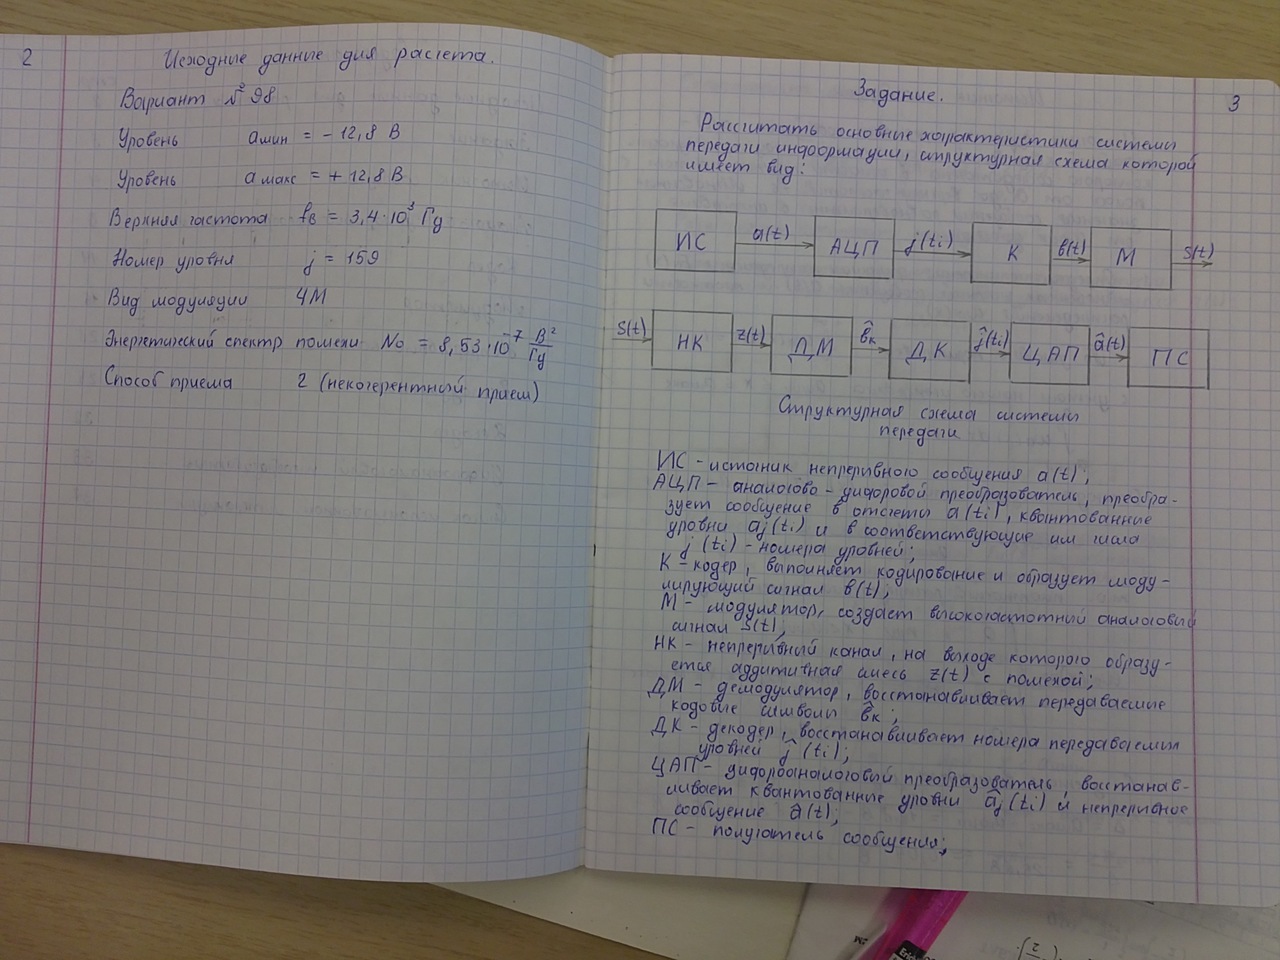 2
Исходные данные для расчета.
Вариант № 98
Уровень aмин = - 12,8 В
Уровень aмакс = + 12,8 В
Верхняя частота fв = 3,4·10³ Гц
Номер уровня j = 159
Вид модуляции ЧМ
Энергетический спектр помехи No = 8,53·10⁻⁷ В²/Гц
Способ приема 2 (некогерентный прием)
3
Задание.
Рассчитать основные характеристики системы
передачи информации, структурная схема которой
имеет вид:
ИС a(t) АЦП j(ti) К b(t) М s(t)
S(t) НК z(t) ДМ b̂к ДК ĵ(ti) ЦАП â(t) ПС
Структурная схема системы
передачи
ИС - источник непрерывного сообщения a(t);
АЦП - аналогово - цифровой преобразователь, преобра-
зует сообщение в отсчеты a(ti), квантованные
уровни aj(ti) и в соответствующие им числа
j(ti) - номера уровней;
К - кодер, выполняет кодирование и образует моду-
лирующий сигнал b(t);
М - модулятор, создает высокочастотный аналоговый
сигнал S(t);
НК - непрерывный канал, на выходе которого образу-
ется аддитивная смесь z(t) с помехой;
ДМ - демодулятор, восстанавливает передаваемые
кодовые символы b̂к;
ДК - декодер, восстанавливает номера передаваемых
уровней ĵ(ti);
ЦАП - цифроаналоговый преобразователь, восстанав-
ливает квантованные уровни âj(ti) и непрерывное
сообщение â(t);
ПС - получатель сообщения;